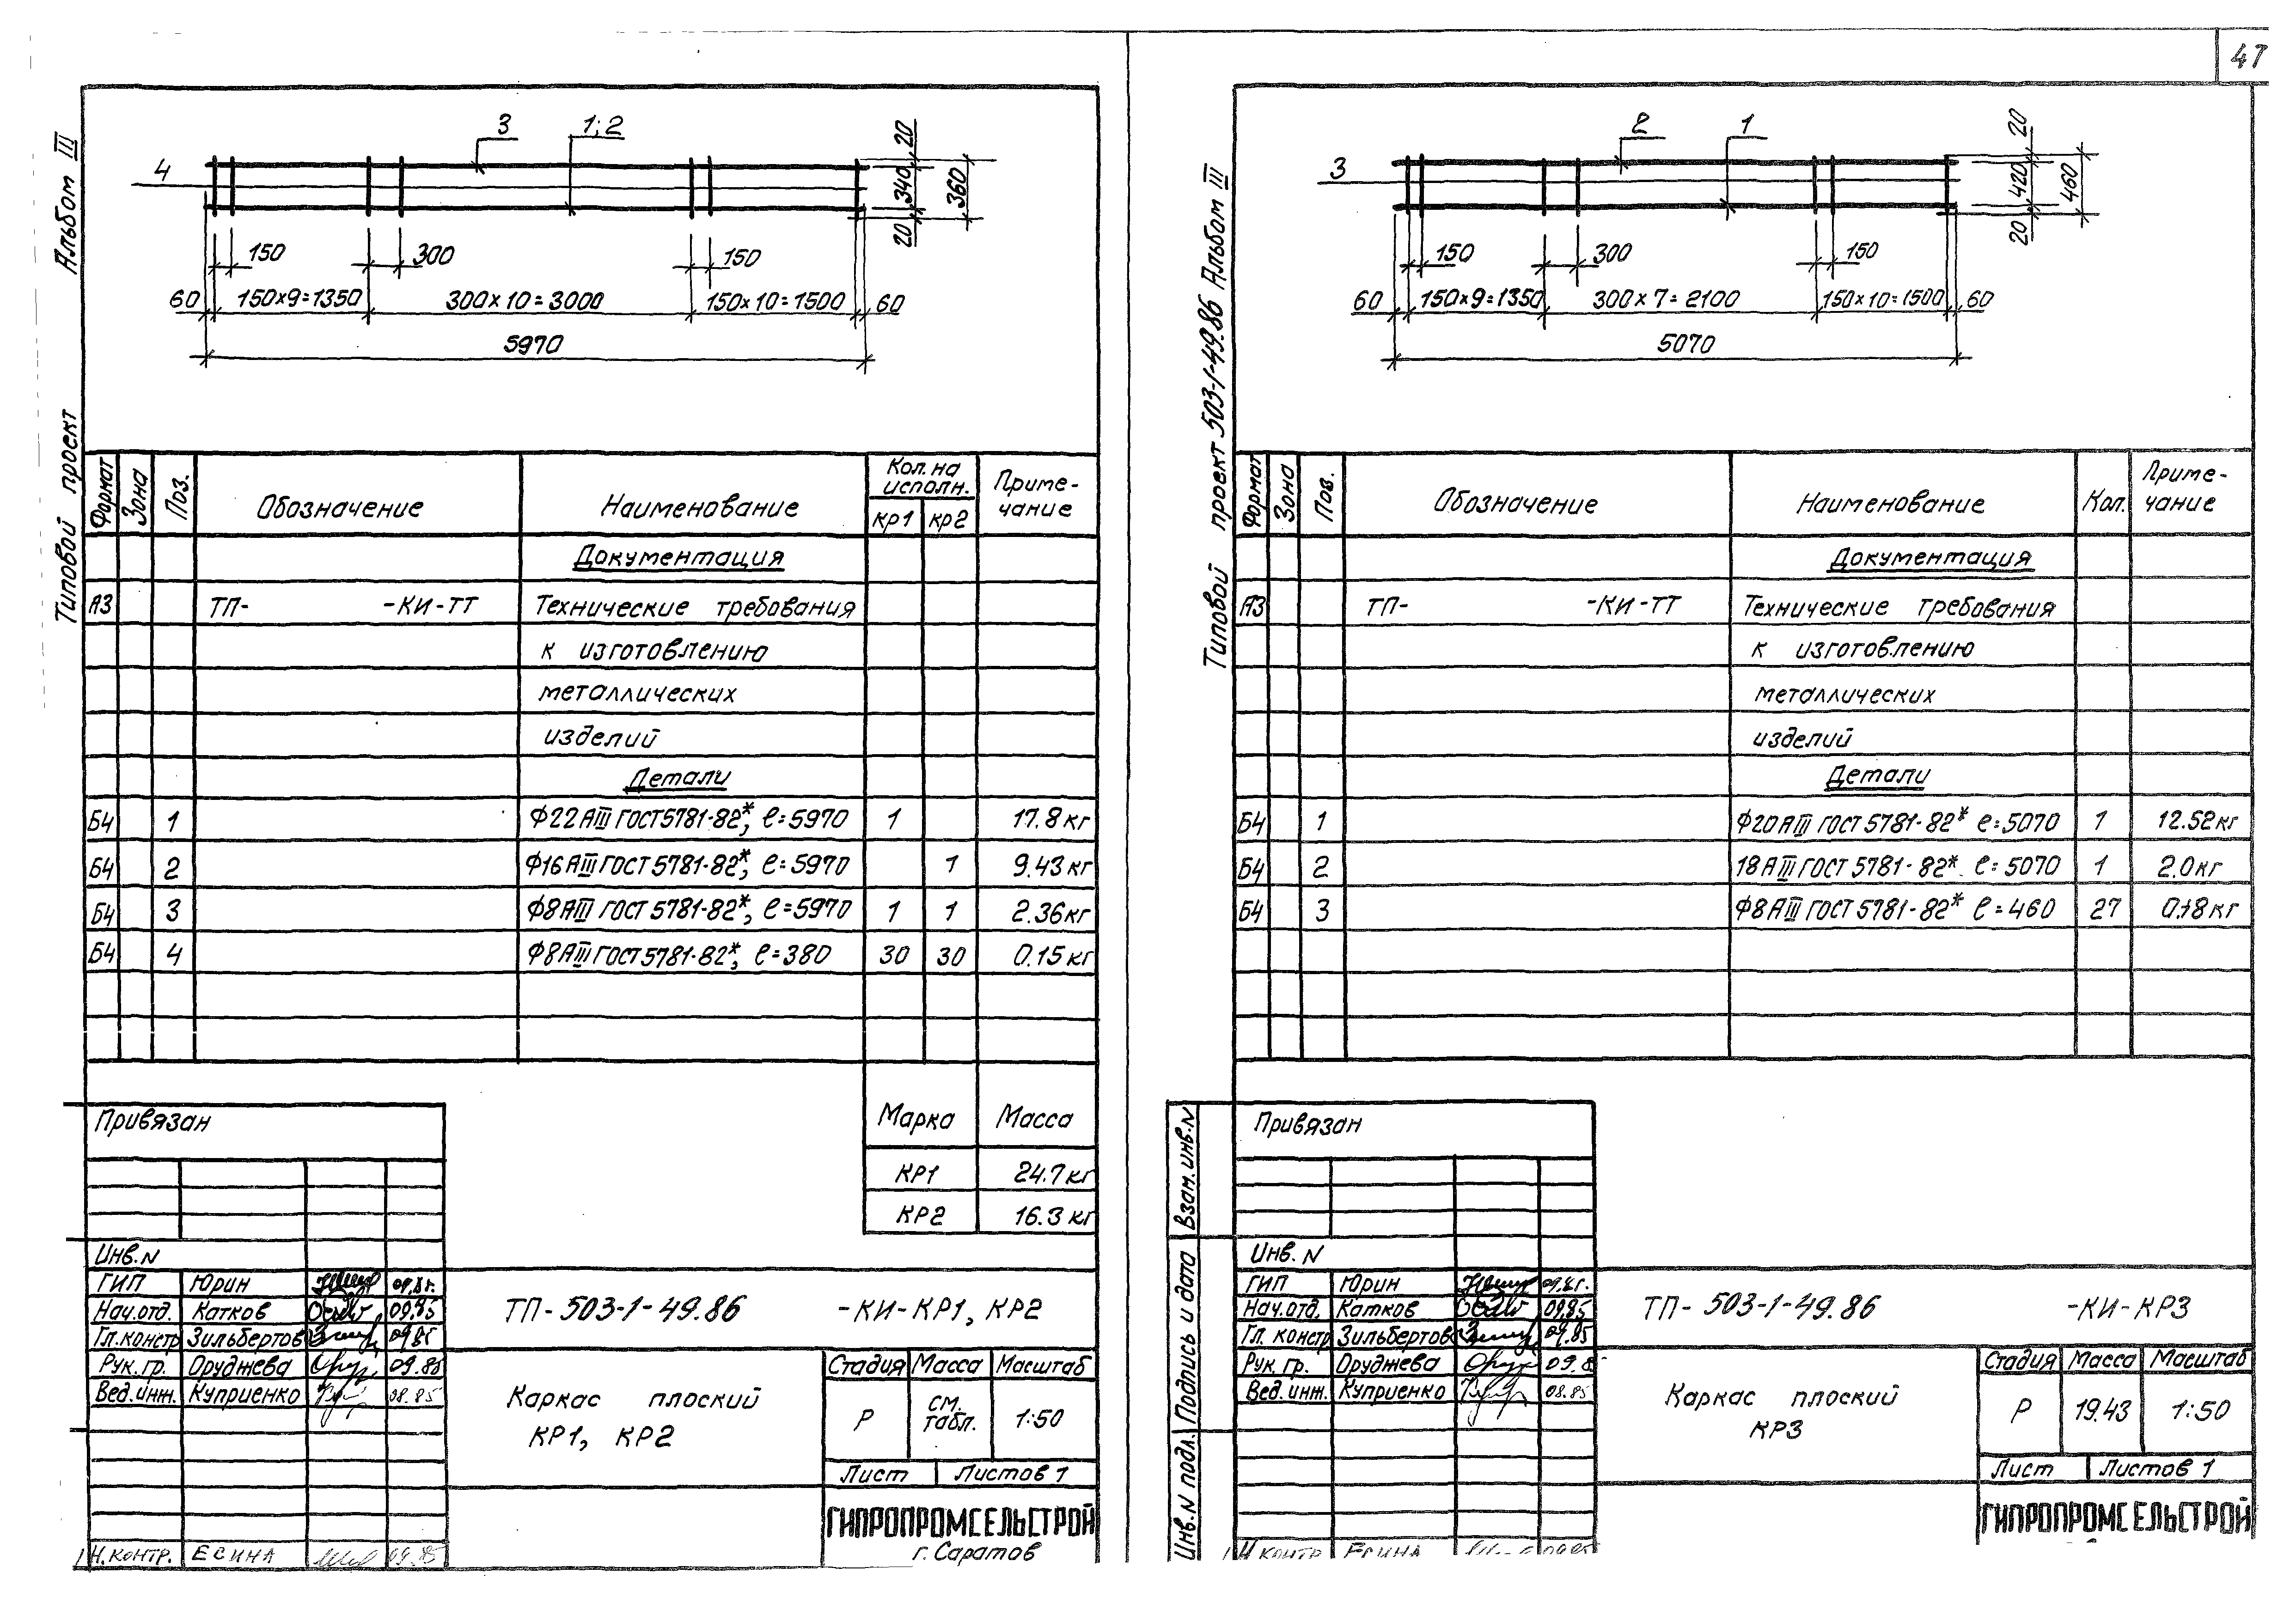 47
Альбом III
Типовой проект
3
1; 2
4
20
340
360
20
150
300
150
60
150×9=1350
300×10=3000
150×10=1500
60
5970
Формат Зона Поз. Обозначение Наименование Кол. на исполн. Приме-
чание
КР1 КР2
Документация
А3 ТП- -КИ-ТТ Технические требования
к изготовлению
металлических
изделий
Детали
Б4 1 Ф22АIII ГОСТ5781-82*, ℓ=5970 1 17.8кг
Б4 2 Ф16АIII ГОСТ5781-82*, ℓ=5970 1 9.43кг
Б4 3 Ф8АIII ГОСТ5781-82*, ℓ=5970 1 1 2.36кг
Б4 4 Ф8АIII ГОСТ5781-82*, ℓ=380 30 30 0.15кг
Марка Масса
КР1 24.7кг
КР2 16.3кг
Привязан
Инв.N
ГИП Юрин
Нач.отд. Катков 09.85
Гл.констр Зильбертов 09.85
Рук.гр. Оруджева 09.85
Вед.инж. Куприенко 08.85
Н.контр. Есина 09.85
ТП-503-1-49.86 -КИ-КР1, КР2
Каркас плоский
КР1, КР2
Стадия Масса Масштаб
Р см.
табл. 1:50
Лист Листов 1
ГИПРОПРОМСЕЛЬСТРОЙ
г. Саратов
Типовой проект 503-1-49.86 Альбом III
2
1
3
20
420
460
20
150
300
150
60
150×9=1350
300×7=2100
150×10=1500
60
5070
Формат Зона Поз. Обозначение Наименование Кол. Приме-
чание
Документация
А3 ТП- -КИ-ТТ Технические требования
к изготовлению
металлических
изделий
Детали
Б4 1 Ф20АIII ГОСТ5781-82* ℓ=5070 1 12.52кг
Б4 2 18АIII ГОСТ5781-82* ℓ=5070 1 2.0кг
Б4 3 Ф8АIII ГОСТ5781-82* ℓ=460 27 0.18кг
Инв.N подл. Подпись и дата Взам.инв.N
Привязан
Инв.N
ГИП Юрин
Нач.отд. Катков 09.85
Гл.констр Зильбертов 09.85
Рук.гр. Оруджева
Вед.инж. Куприенко 08.85
Н контр Есина
ТП-503-1-49.86 -КИ-КР3
Каркас плоский
КР3
Стадия Масса Масштаб
Р 19.43 1:50
Лист Листов 1
ГИПРОПРОМСЕЛЬСТРОЙ